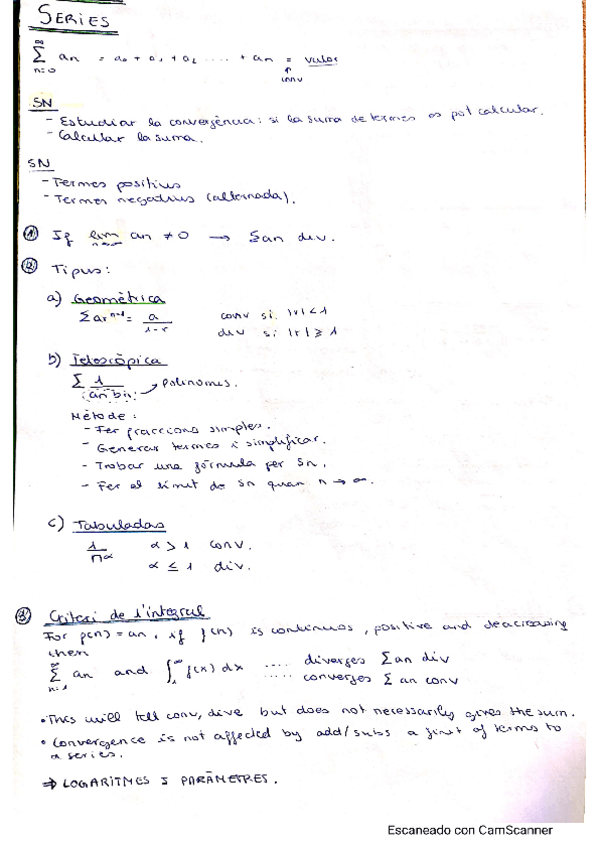 SERIES
∞ Σ n=0 an = a0 + a1 + a2 .... + an = valor
↑
SN
- Estudiar la convergència: si la suma de termes es pot calcular.
- Calcular la suma.
SN
- Termes positius
- Termes negatius (alternada).
① If lim n→∞ an ≠ 0 → Σan div.
② Tipus:
a) Geomètrica
Σ ar^n-1 = a / 1-r conv si |r| < 1
div si |r| ≥ 1
b) Telescòpica
Σ 1 / (an bn) → polinomis.
Mètode:
- Fer fraccions simples.
- Generar termes i simplificar.
- Trobar una fórmula per Sn.
- Fer el límit de Sn quan n → ∞.
c) Tabuladas
1 / n^α α > 1 conv.
α ≤ 1 div.
③ Criteri de l'integral
For f(n) = an, if f(n) is continuos, positive and deacreasing
then
∞ Σ n=1 an and ∫1^∞ f(x) dx .... diverges Σ an div
..... converges Σ an conv
• This will tell conv, dive but does not necessarily gives the sum.
• Convergence is not affected by add/subs a finit of terms to
a series.
⇒ LOGARITMES I PARÀMETRES.
Escaneado con CamScanner